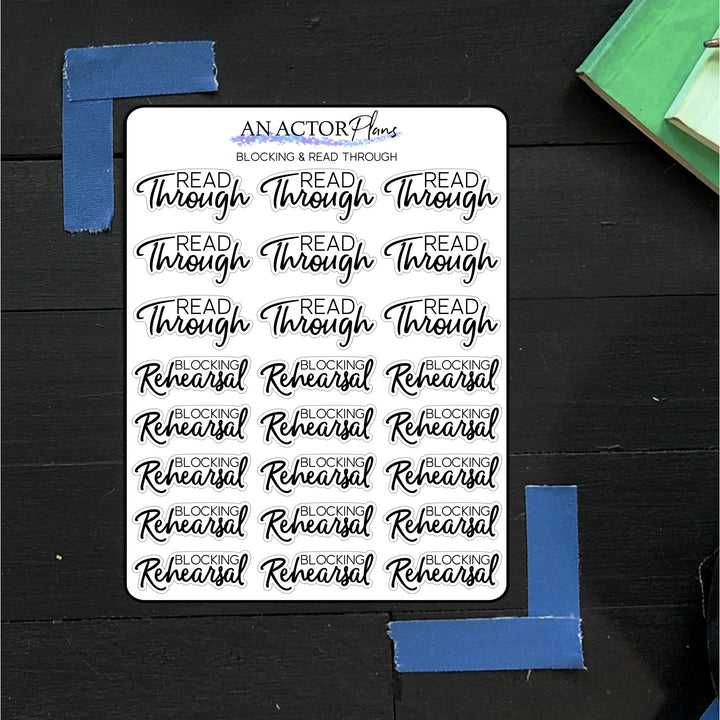 AN ACTOR Plans
BLOCKING & READ THROUGH
READ READ READ
Through Through Through
READ READ READ
Through Through Through
READ READ READ
Through Through Through
BLOCKING BLOCKING BLOCKING
Rehearsal Rehearsal Rehearsal
BLOCKING BLOCKING BLOCKING
Rehearsal Rehearsal Rehearsal
BLOCKING BLOCKING BLOCKING
Rehearsal Rehearsal Rehearsal
BLOCKING BLOCKING BLOCKING
Rehearsal Rehearsal Rehearsal
BLOCKING BLOCKING BLOCKING
Rehearsal Rehearsal Rehearsal